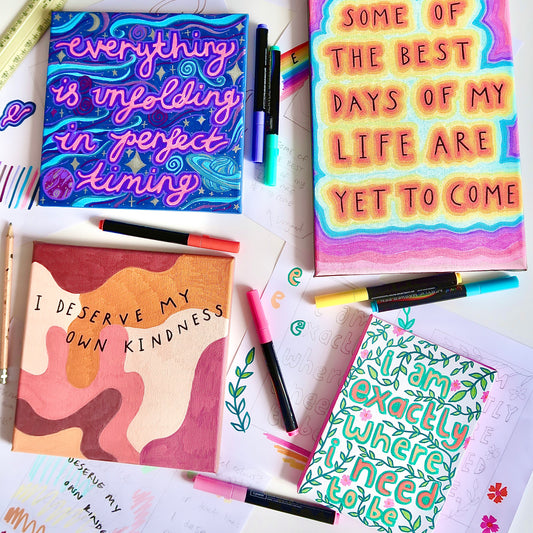 everything
is unfolding
in perfect
timing
SOME OF
THE BEST
DAYS OF MY
LIFE ARE
YET TO COME
I DESERVE MY
OWN KINDNESS
i am
exactly
where
i need
to be
DESERVE MY
OWN KINDNE